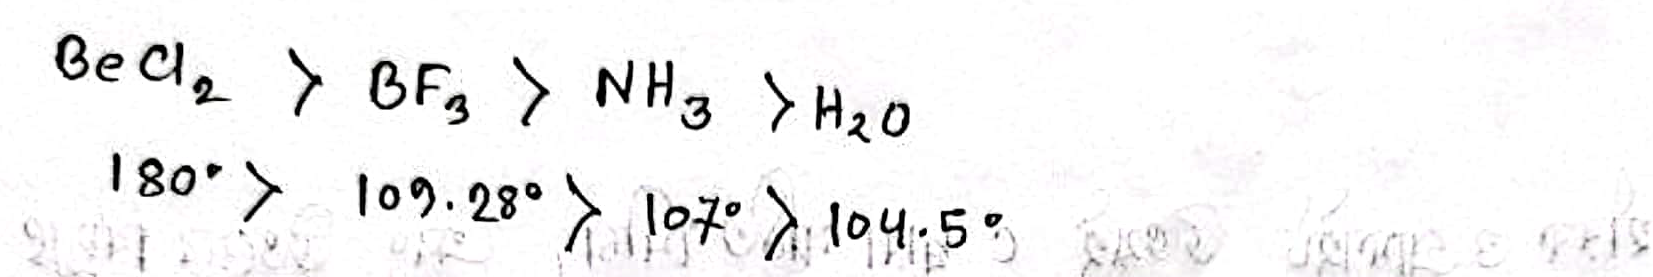 BeCl₂ > BF₃ > NH₃ > H₂O
180° > 109.28° > 107° > 104.5°